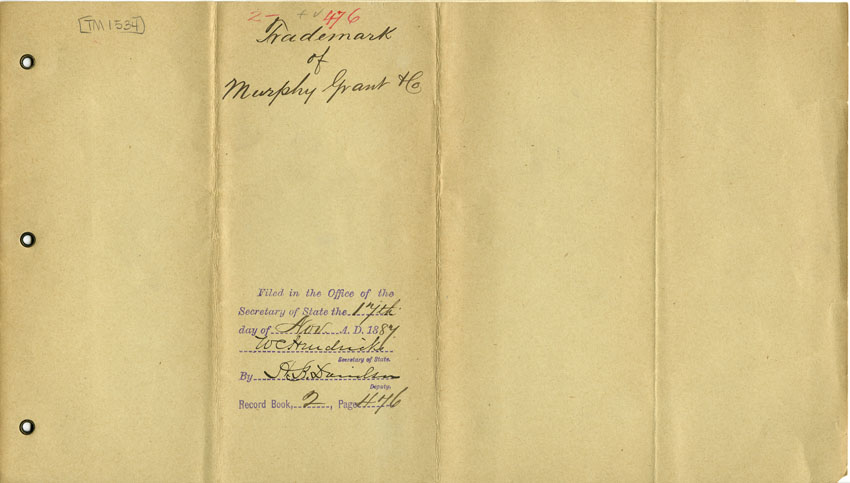 [TM 1534]
2- 476
Trademark
of
Murphy Grant & Co
Filed in the Office of the
Secretary of State the 17th
day of Nov A. D. 1887
W C Hendricks
Secretary of State.
By
Deputy.
Record Book, 2, Page 476